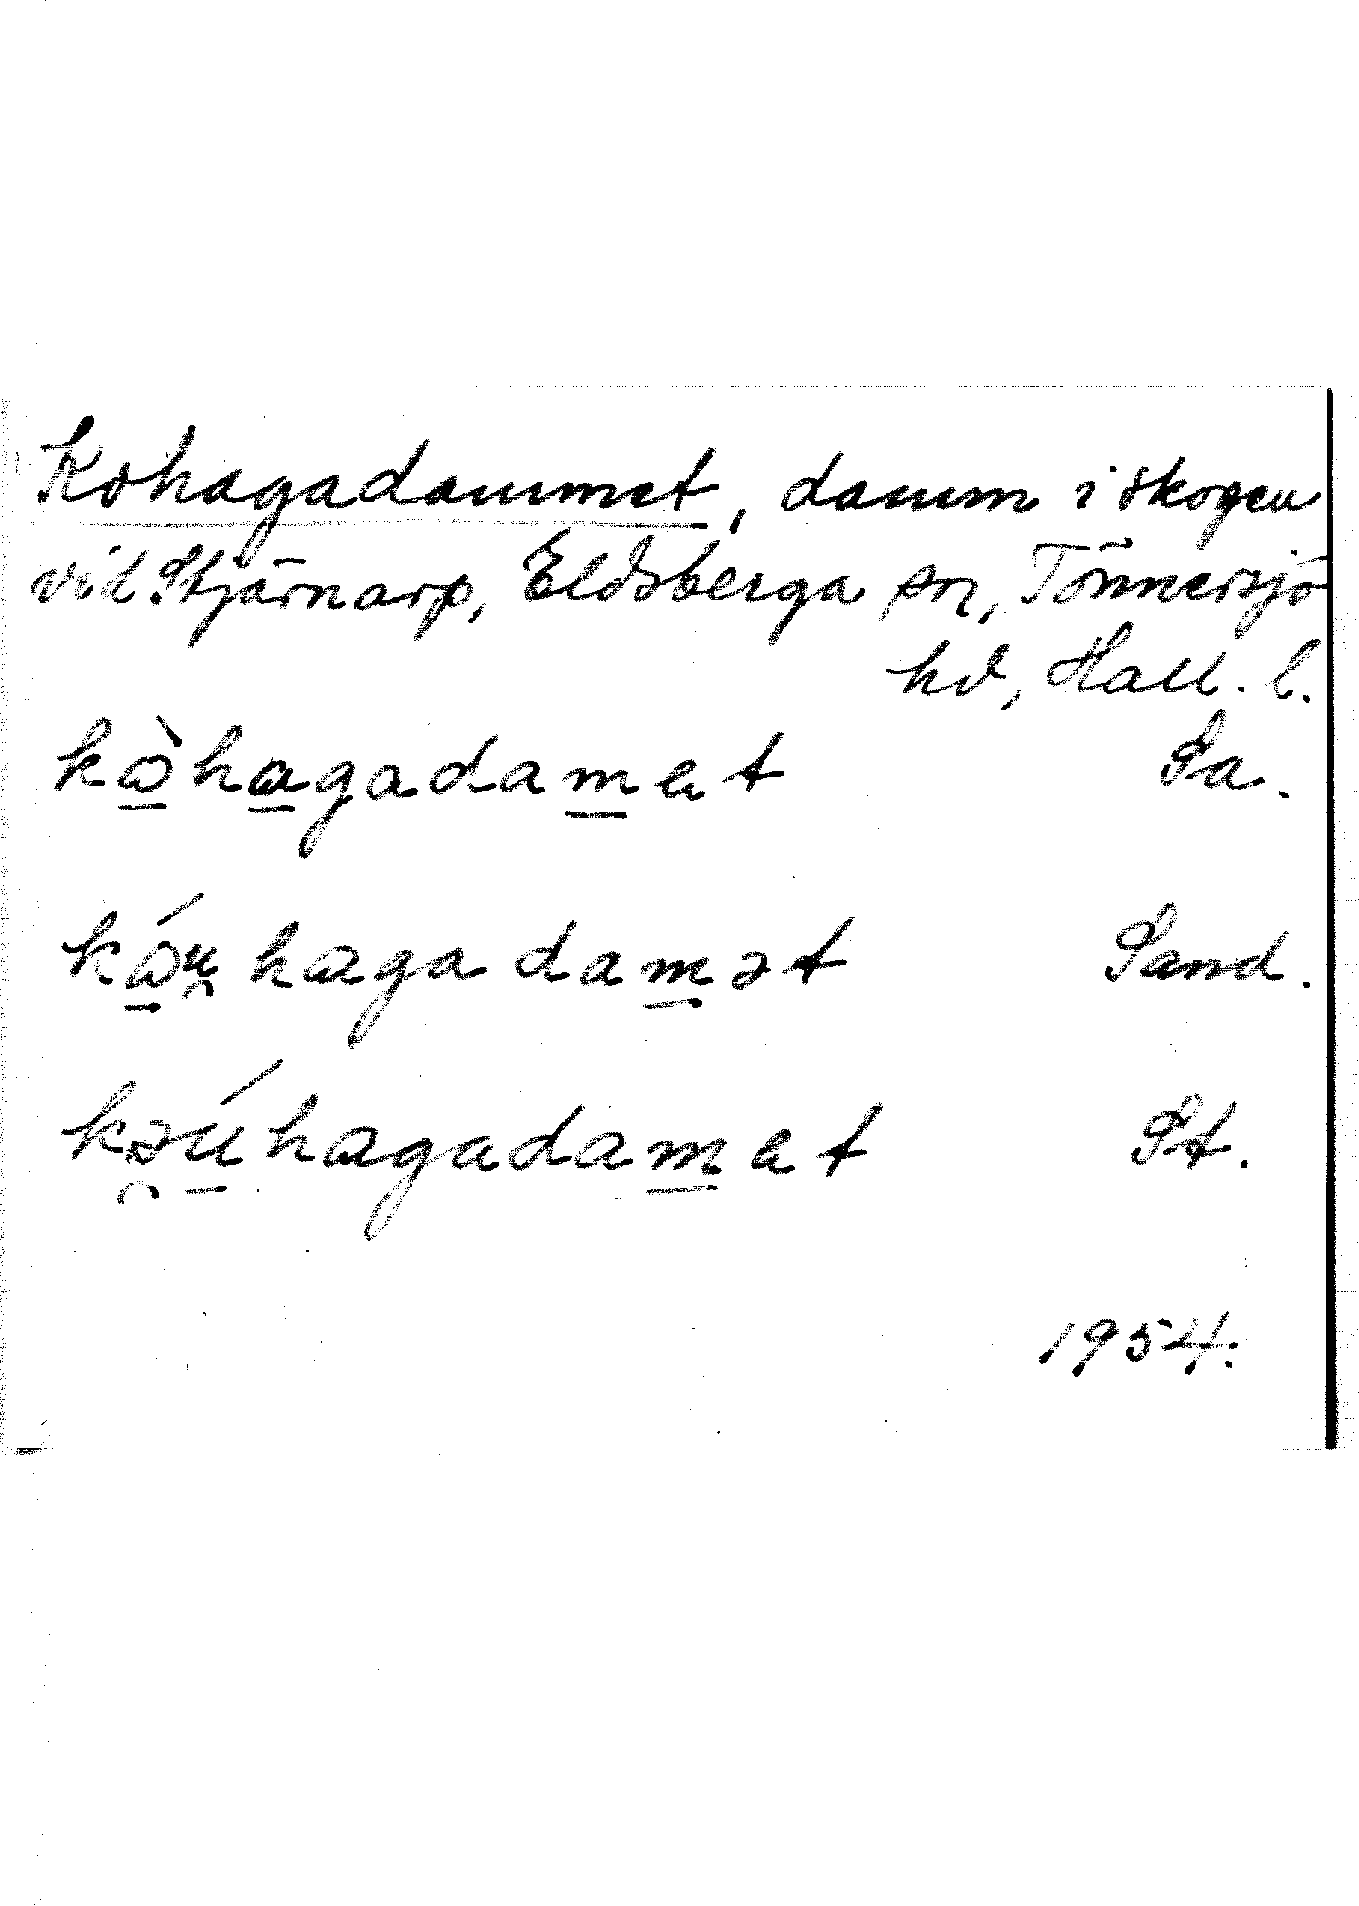 Kohagadammet, damm i skogen
vid Stjärnarp, Eldsberga sn, Tönnersjö
hd, Hall. l.
kòhagadamet Sa.
káu̯hagadamət Sand.
kə̯úhagadamet St.
1954.